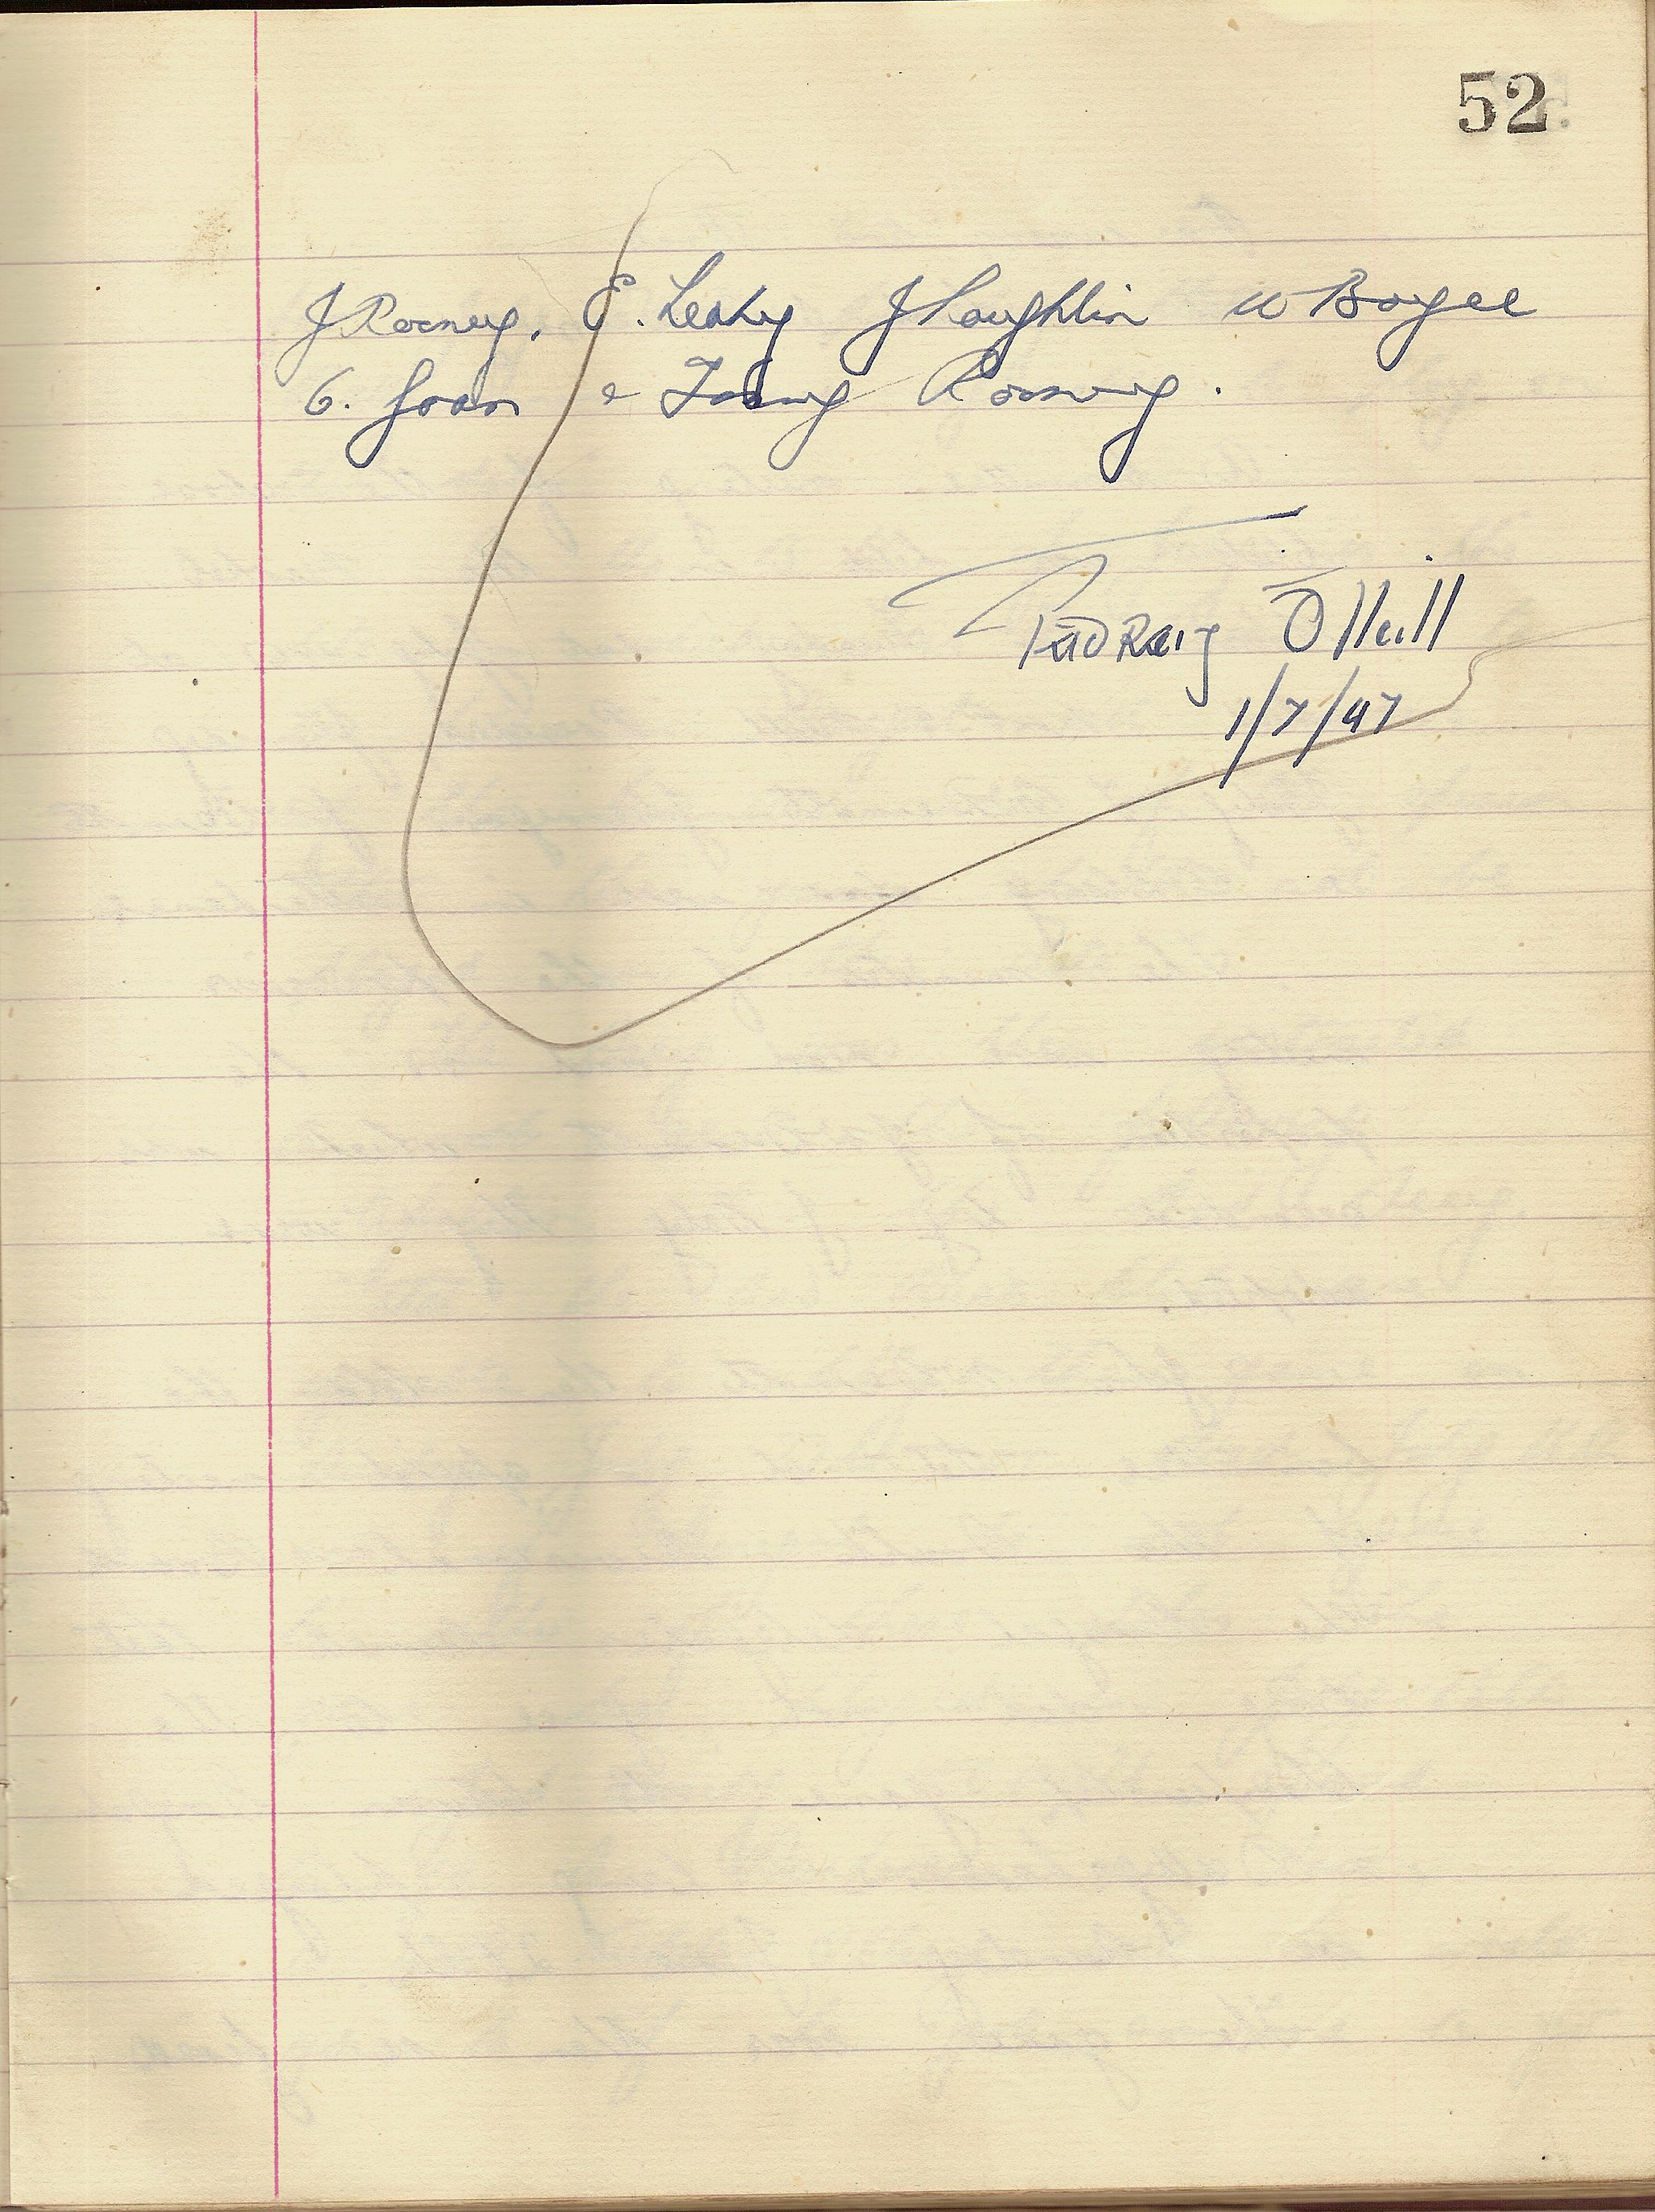 52
J Rooney, E. Leahy J Loughlin W Boyce
G. Goan & Rooney.
Pádraig Ó Neill
1/7/47